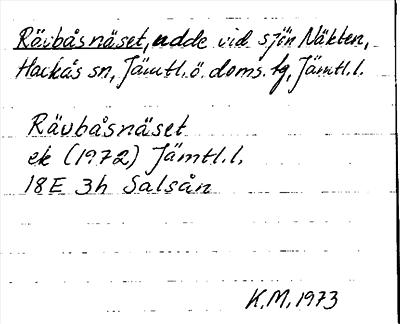 Rävbåsnäset, udde vid sjön Näkten,
Hackås sn, Jämtl. ö. doms. tg, Jämtl. l.
Rävbåsnäset
ek (1972) Jämtl. l.
18E 3h Salsån
K.M. 1973